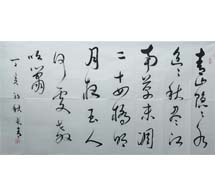 青山隱隱水
迢迢秋盡江
南草未凋
二十四橋明
月夜玉人
何處教
吹簫
丁亥初秋